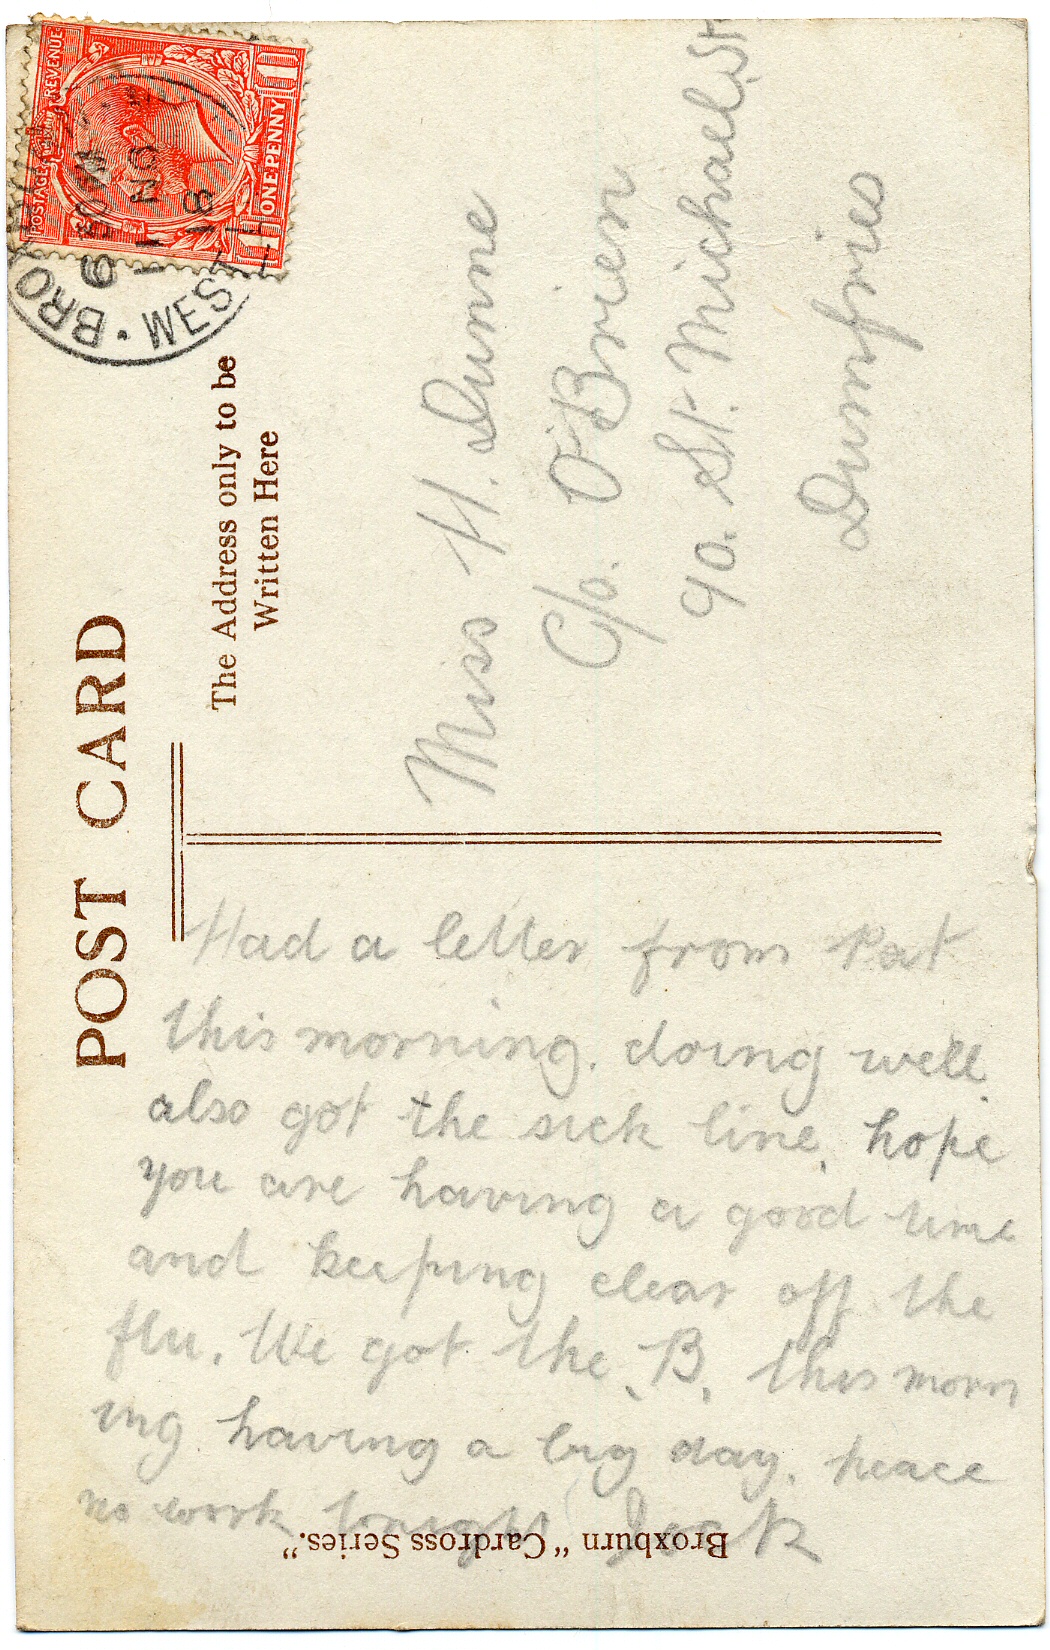 POST CARD
The Address only to be
Written Here
POSTAGE REVENUE
ONE PENNY
BRO
6 50 PM
11 NO
18
WEST
Miss H. Dunne
C/o. O'Brien
90. St. Michael St
Dumfries
Had a letter from Pat
this morning. doing well
also got the sick line, hope
you are having a good time
and keeping clear off the
flu. We got the B. this morn
ing having a big day. peace
no work tonight Jack
Broxburn "Cardross Series."